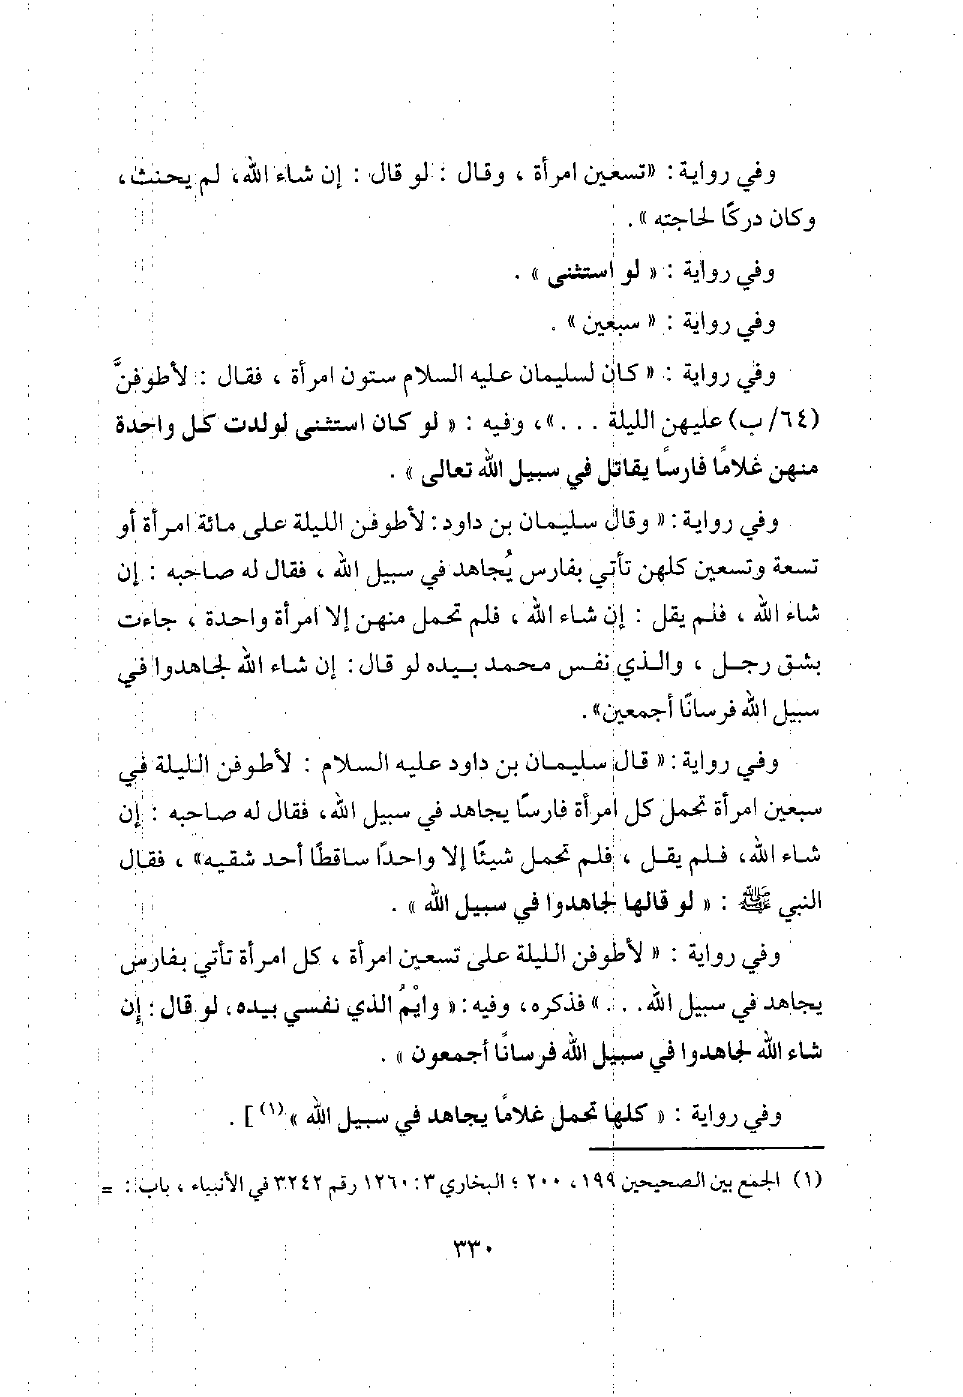 وفي رواية : «تسعين امرأة ، وقال : لو قال : إن شاء الله، لم يحنث،
وكان دركًا لحاجته » .
وفي رواية : « لو استثنى » .
وفي رواية : « سبعين » .
وفي رواية : « كان لسليمان عليه السلام ستون امرأة ، فقال : لأطوفنَّ
(٦٤/ ب) عليهن الليلة . . .»، وفيه : « لو كان استثنى لولدت كل واحدة
منهن غلامًا فارسًا يقاتل في سبيل الله تعالى » .
وفي رواية : « وقال سليمان بن داود : لأطوفن الليلة على مائة امرأة أو
تسعة وتسعين كلهن تأتي بفارس يُجاهد في سبيل الله ، فقال له صاحبه : إن
شاء الله ، فلم يقل : إن شاء الله ، فلم تحمل منهن إلا امرأة واحدة ، جاءت
بشق رجل ، والذي نفس محمد بيده لو قال : إن شاء الله لجاهدوا في
سبيل الله فرسانًا أجمعين» .
وفي رواية : « قال سليمان بن داود عليه السلام : لأطوفن الليلة في
سبعين امرأة تحمل كل امرأة فارسًا يجاهد في سبيل الله، فقال له صاحبه : إن
شاء الله، فلم يقل ، فلم تحمل شيئًا إلا واحدًا ساقطًا أحد شقيه» ، فقال
النبي ﷺ : « لو قالها لجاهدوا في سبيل الله » .
وفي رواية : « لأطوفن الليلة على تسعين امرأة ، كل امرأة تأتي بفارس
يجاهد في سبيل الله. . . .» فذكره، وفيه : « وايْمُ الذي نفسي بيده، لو قال : إن
شاء الله لجاهدوا في سبيل الله فرسانًا أجمعون » .
وفي رواية : « كلها تحمل غلامًا يجاهد في سبيل الله »(١) ] .
(١) الجمع بين الصحيحين ١٩٩، ٢٠٠ ؛ البخاري ٣ : ١٢٦٠ رقم ٣٢٤٢ في الأنبياء ، باب : =
٣٣٠